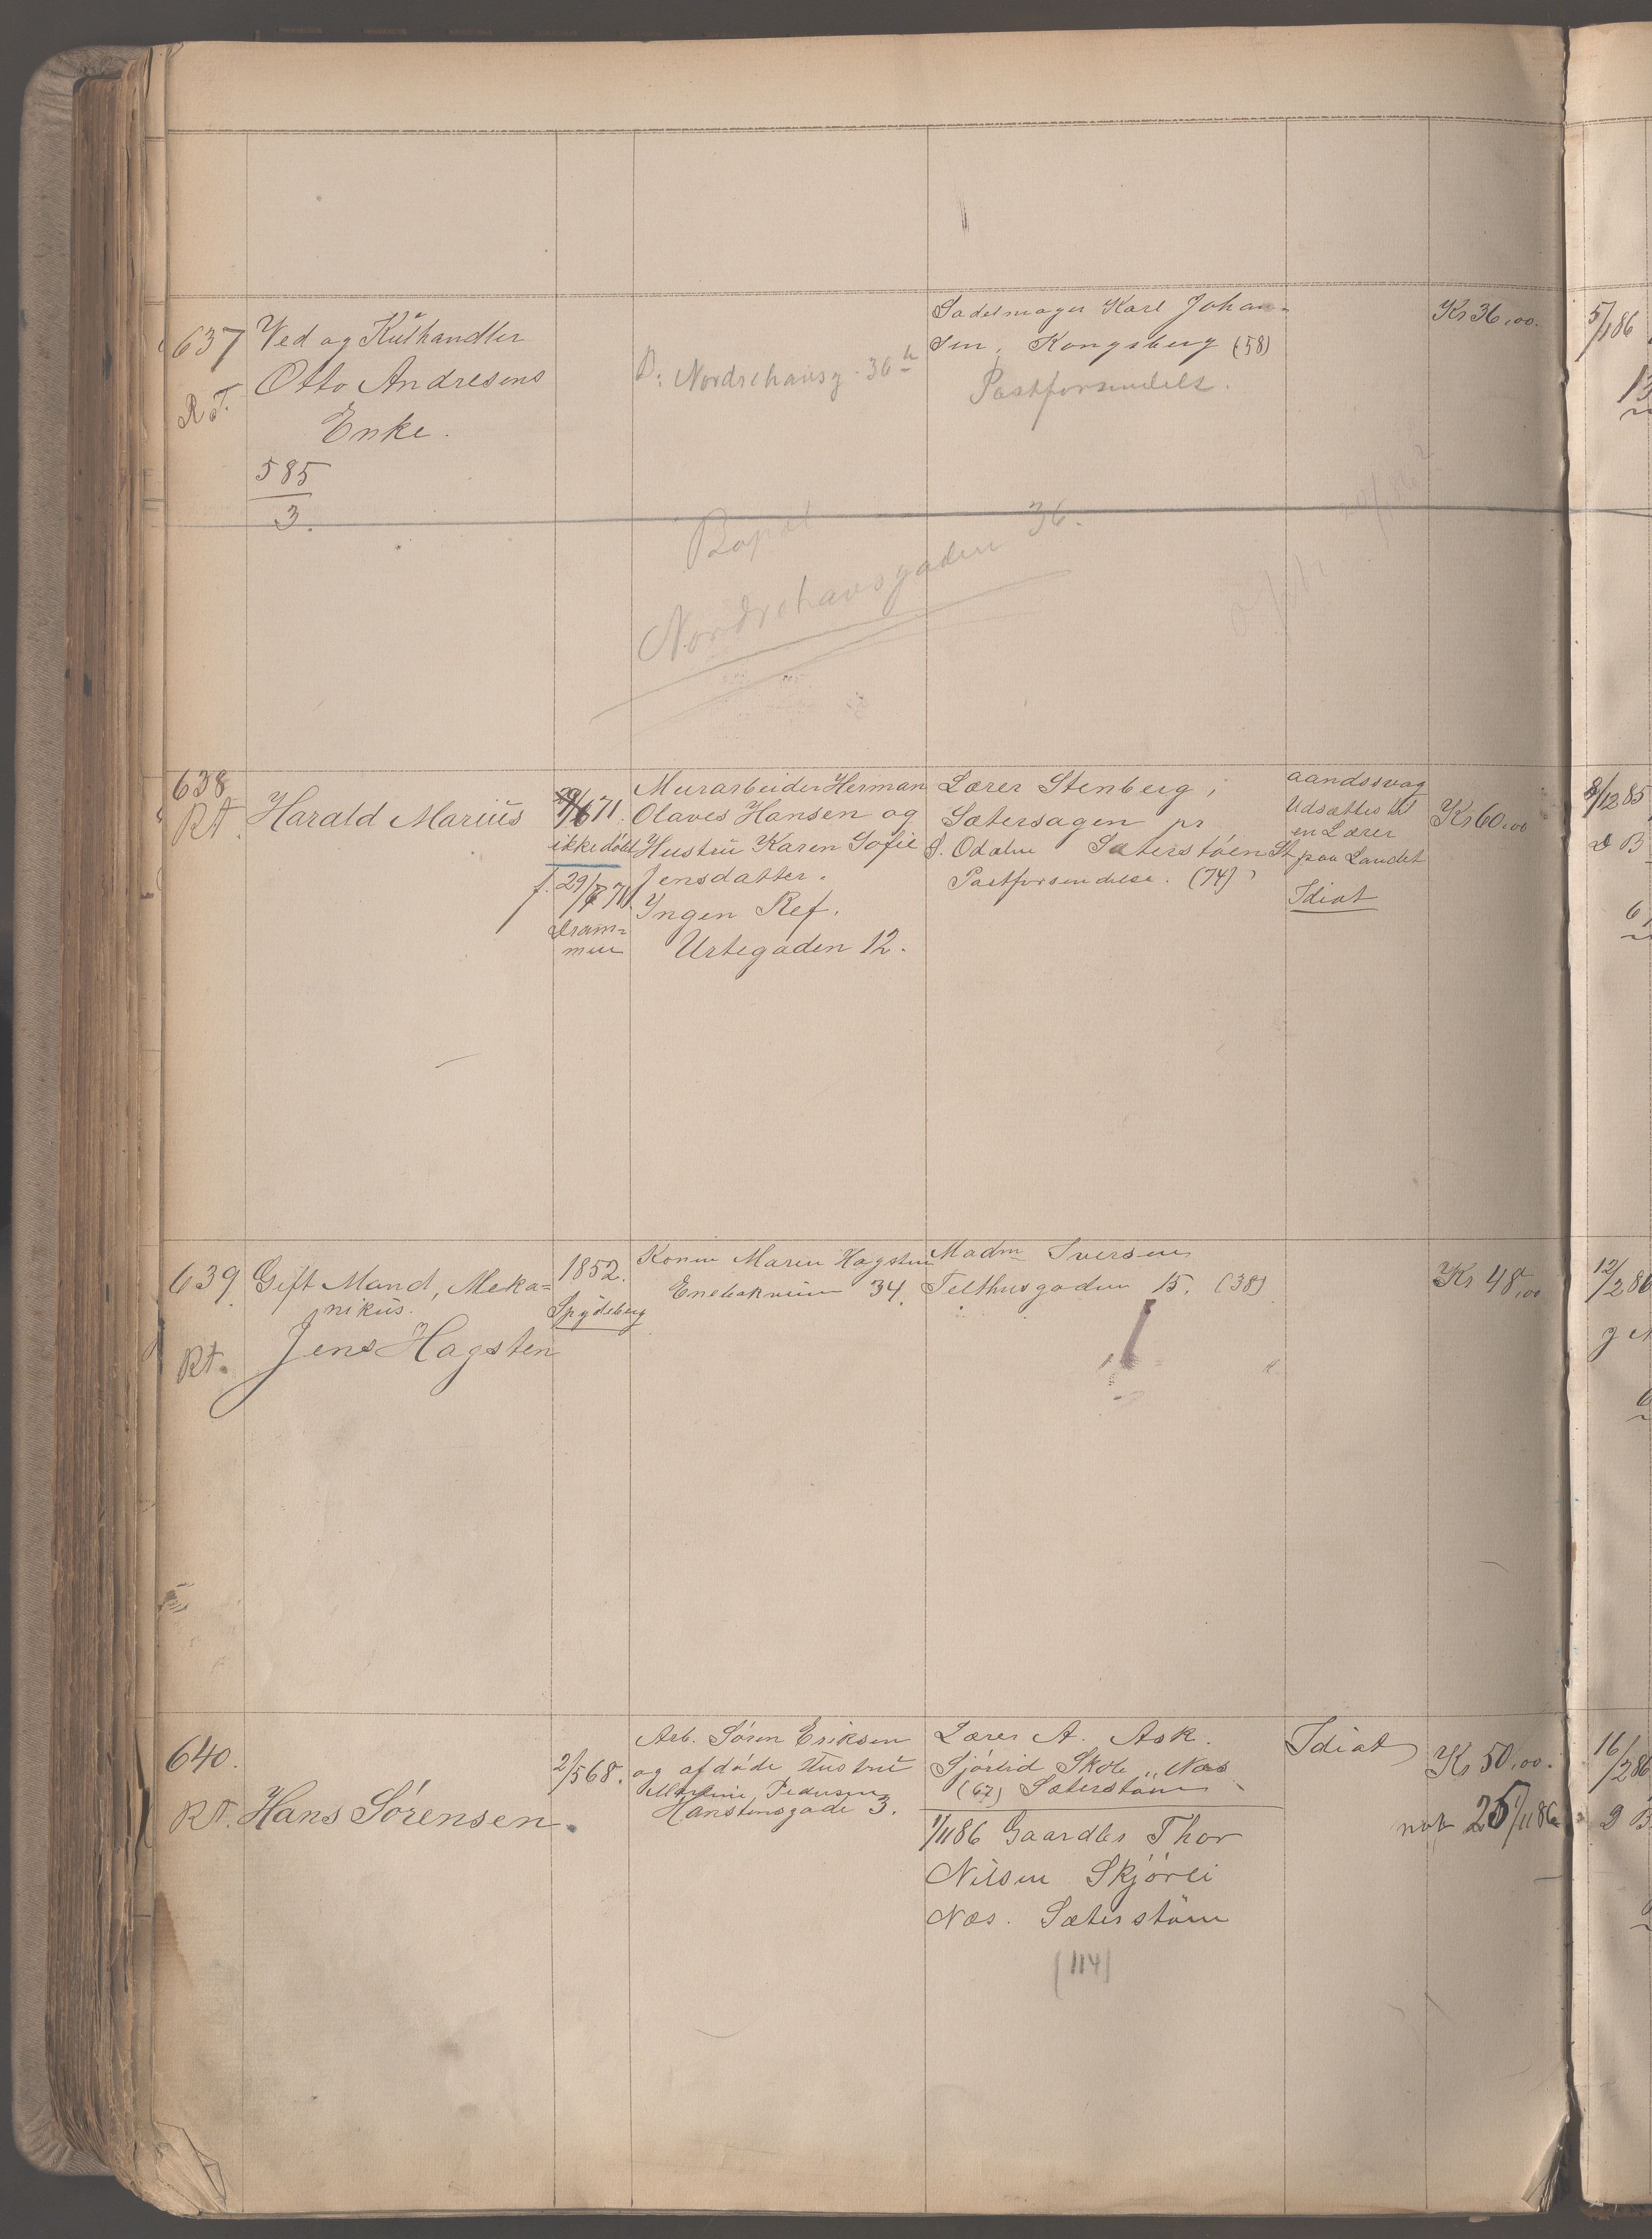 637
R.T.
Ved og Kulhandler
Otto Andresens
Enke.
585
3.
B: Nordrehausg. 36
Sadelmager Karl Johan-
sen, Kongsberg (58)
Postforsendelse.
Kr 36,00.
5/1 86
Nordrehausgaden 36.
638
RT.
Harald Marius
71.
ikke døbt
f. 29/ 71
Dram-
men
Murarbeider Herman
Olaves Hansen og
Hustru Karen Sofie
Jensdatter.
Ingen Ref.
Urtegaden 12.
Lærer Stenberg i
Sætersagen pr
S. Odalen Sæterstøen St
Postforsendelse. (74)
aandssvag
Udsættes til
en Lærer
paa Landet
Idiot
Kr 60,00
/12 85
639.
RT.
Gift Mand, Meka-
nikus.
Jens Hagsten
1852.
Spydeberg
Konen Maren Hagsten
Enebakveien 34.
Madm Iversen
Telthusgaden 15. (38)
Kr 48,00
12/2 86
640.
RT.
Hans Sørensen.
2/5 68.
Arb. Søren Eriksen
og afdøde Hustru
Pedersen
Hanstensgade 3.
Lærer A. Ask.
Skole, Næs
(67) Sæterstøen
1/11 86 Gaardbr Thor
Nilsen Skjørli
Næs. Sæterstøen
(114)
Idiot
Kr 50,00.
16/2 86